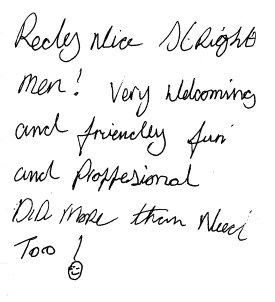 Realy Nice StRight
men! Very Welcoming
and friendley fun
and Proffesional
DiD More than Need
Too!